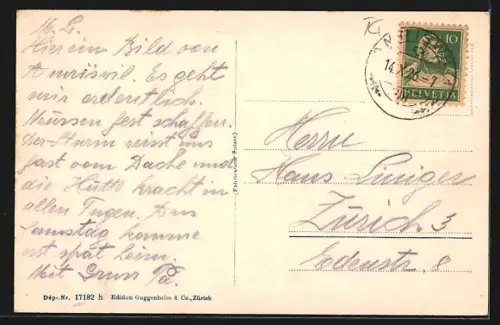 M. L.
Hier ein Bild von
Amriswil. Es geht
mir ordentlich.
Müssen fest schaffen.
Der Sturm reisst uns
fast vom Dache und
die Hütte kracht in
allen Fugen. Am
Samstag komme
erst spät heim.
Mit Gruss Pa.
Dép.-Nr. 17182 h Edition Guggenheim & Co., Zürich
10
HELVETIA
14.X.26
Herrn
Hans Luniger
Zürich 3
Edenstr. 8